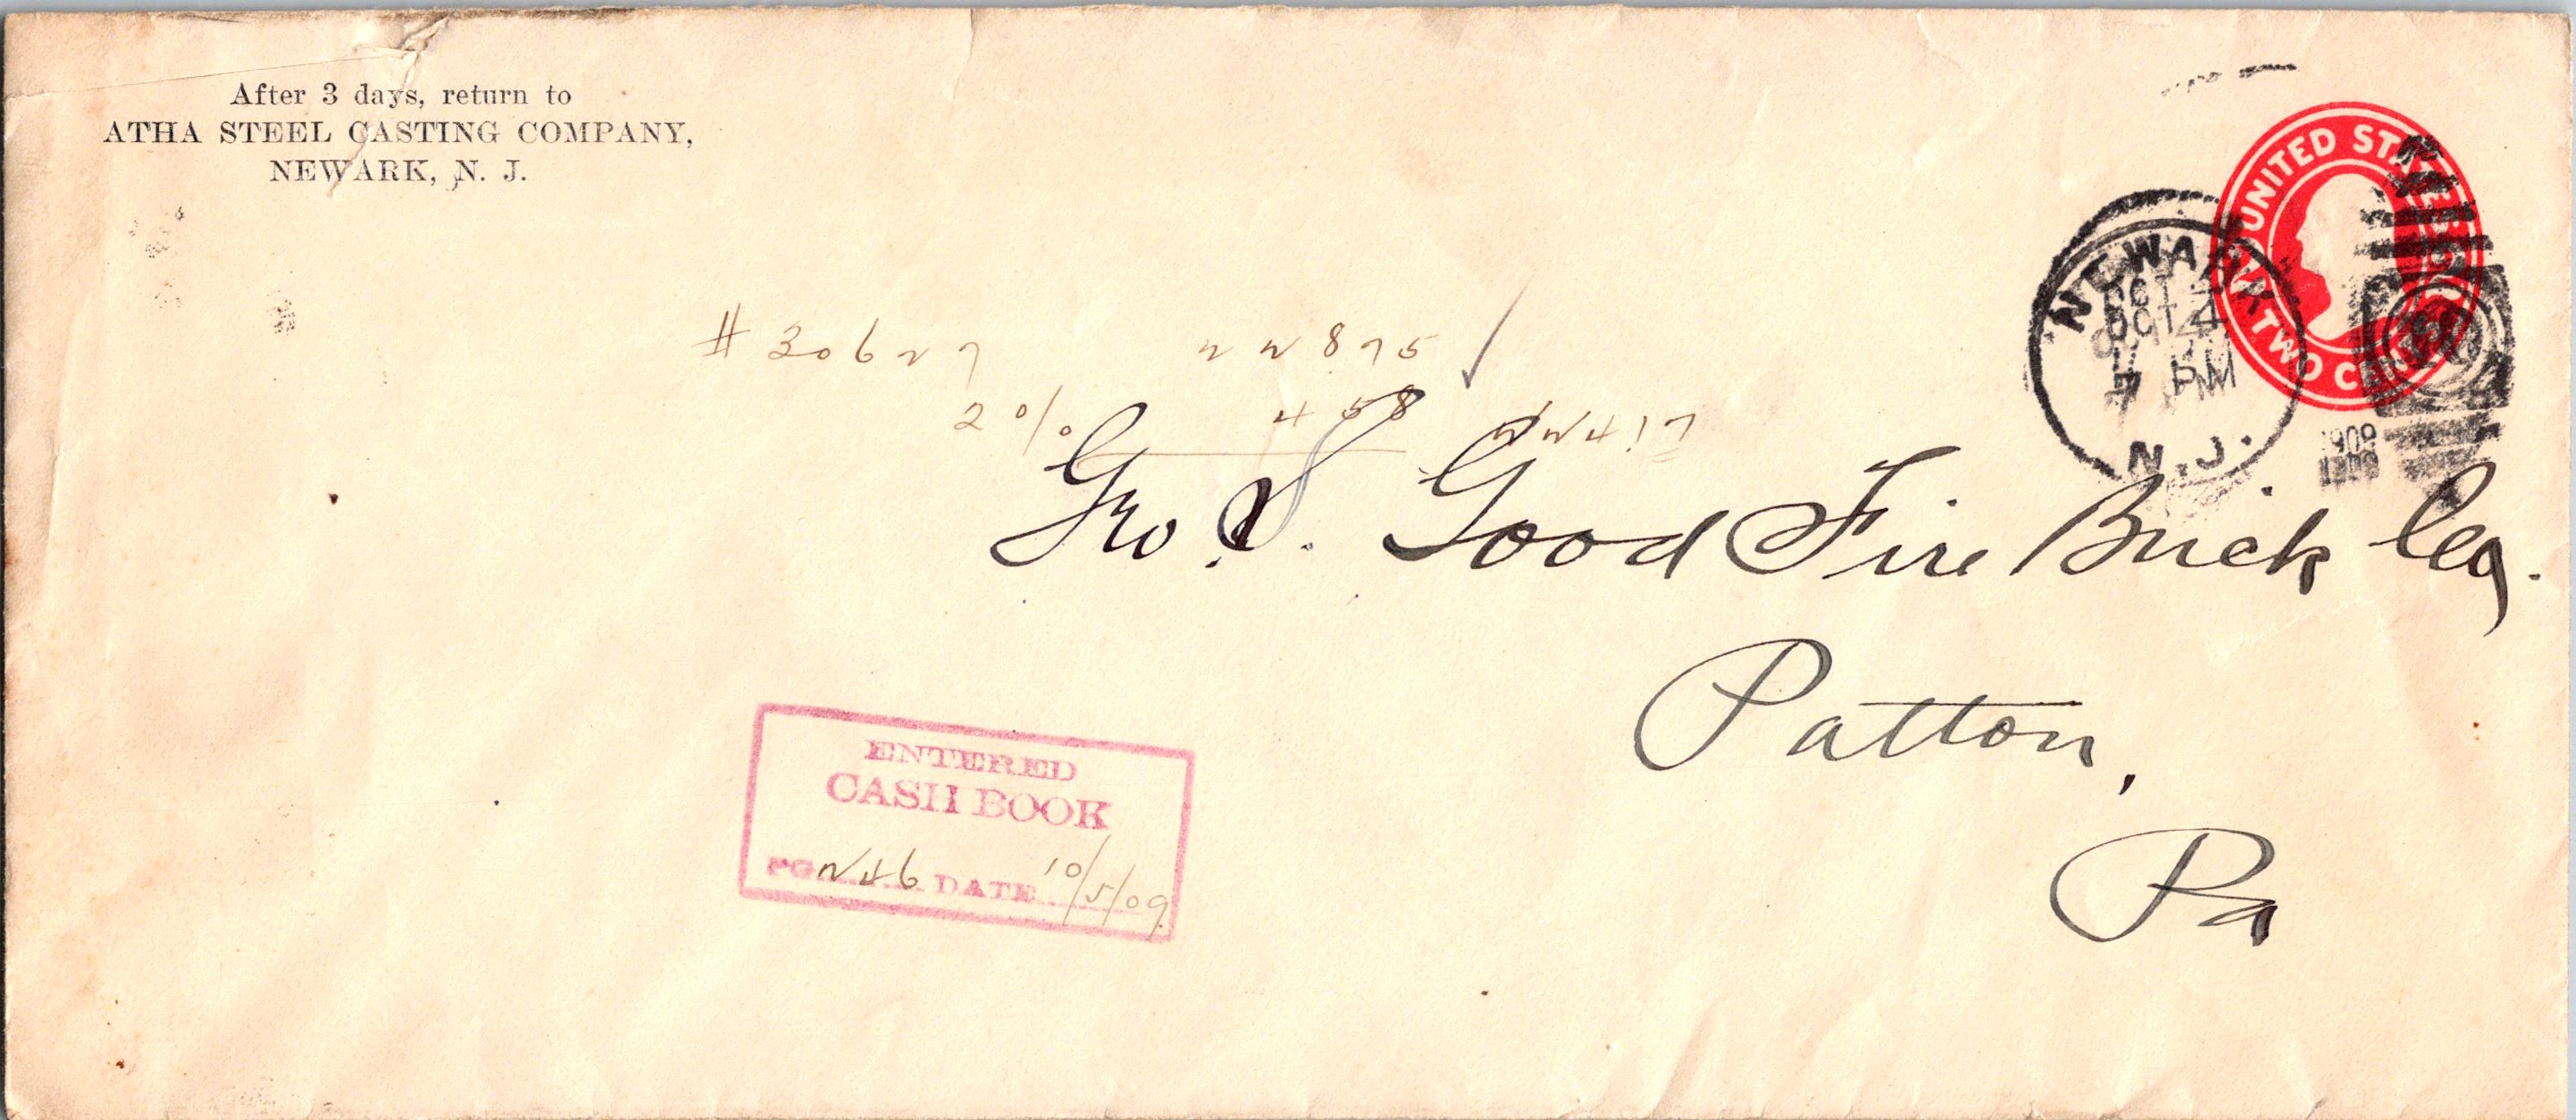 After 3 days, return to
ATHA STEEL CASTING COMPANY,
NEWARK, N. J.
UNITED STATES
TWO CENTS
NEWARK
OCT 4
7 PM
N.J.
1909
# 30627 22875 ✓
2% 458 22417
Geo. S. Good Fire Brick Co.
Patton,
Pa
ENTERED
CASH BOOK
PG 246 DATE 10/5/09